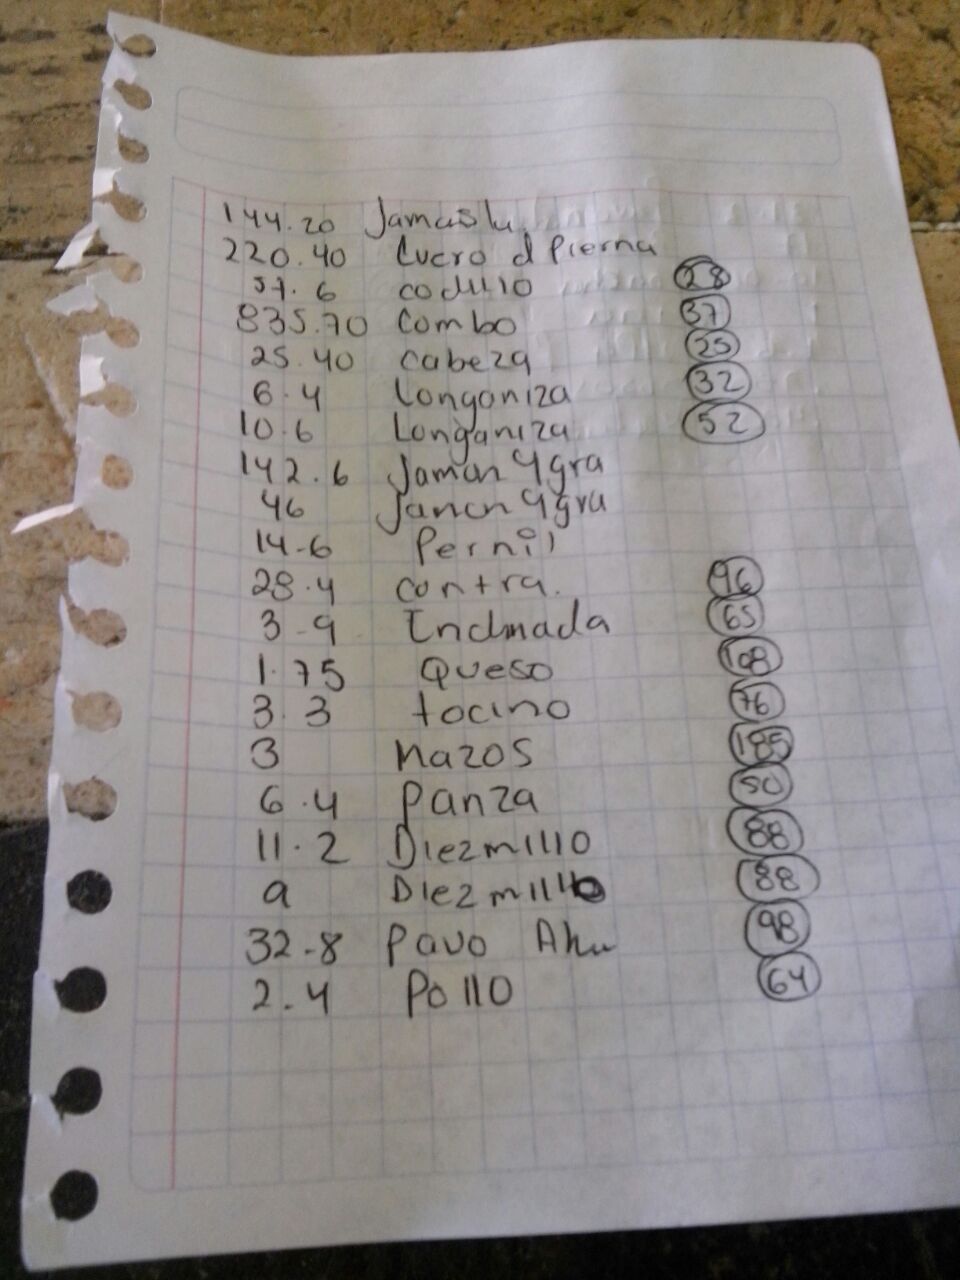 144.20 Jamaslu
220.40 Cuero d Pierna
57.6 codillo 28
835.70 Combo 37
25.40 cabeza 25
6.4 Longaniza 32
10.6 Longaniza 52
142.6 Jamon 4gra
46 Jamon 4gra
14-6 Pernil
28.4 contra. 96
3-9 Enchnada 65
1.75 Queso 108
3.3 tocino 76
3 Mazos 185
6.4 Panza 50
11.2 Diezmillo 88
9 Diezmillo 88
32-8 Pavo Ahu 98
2.4 Pollo 64